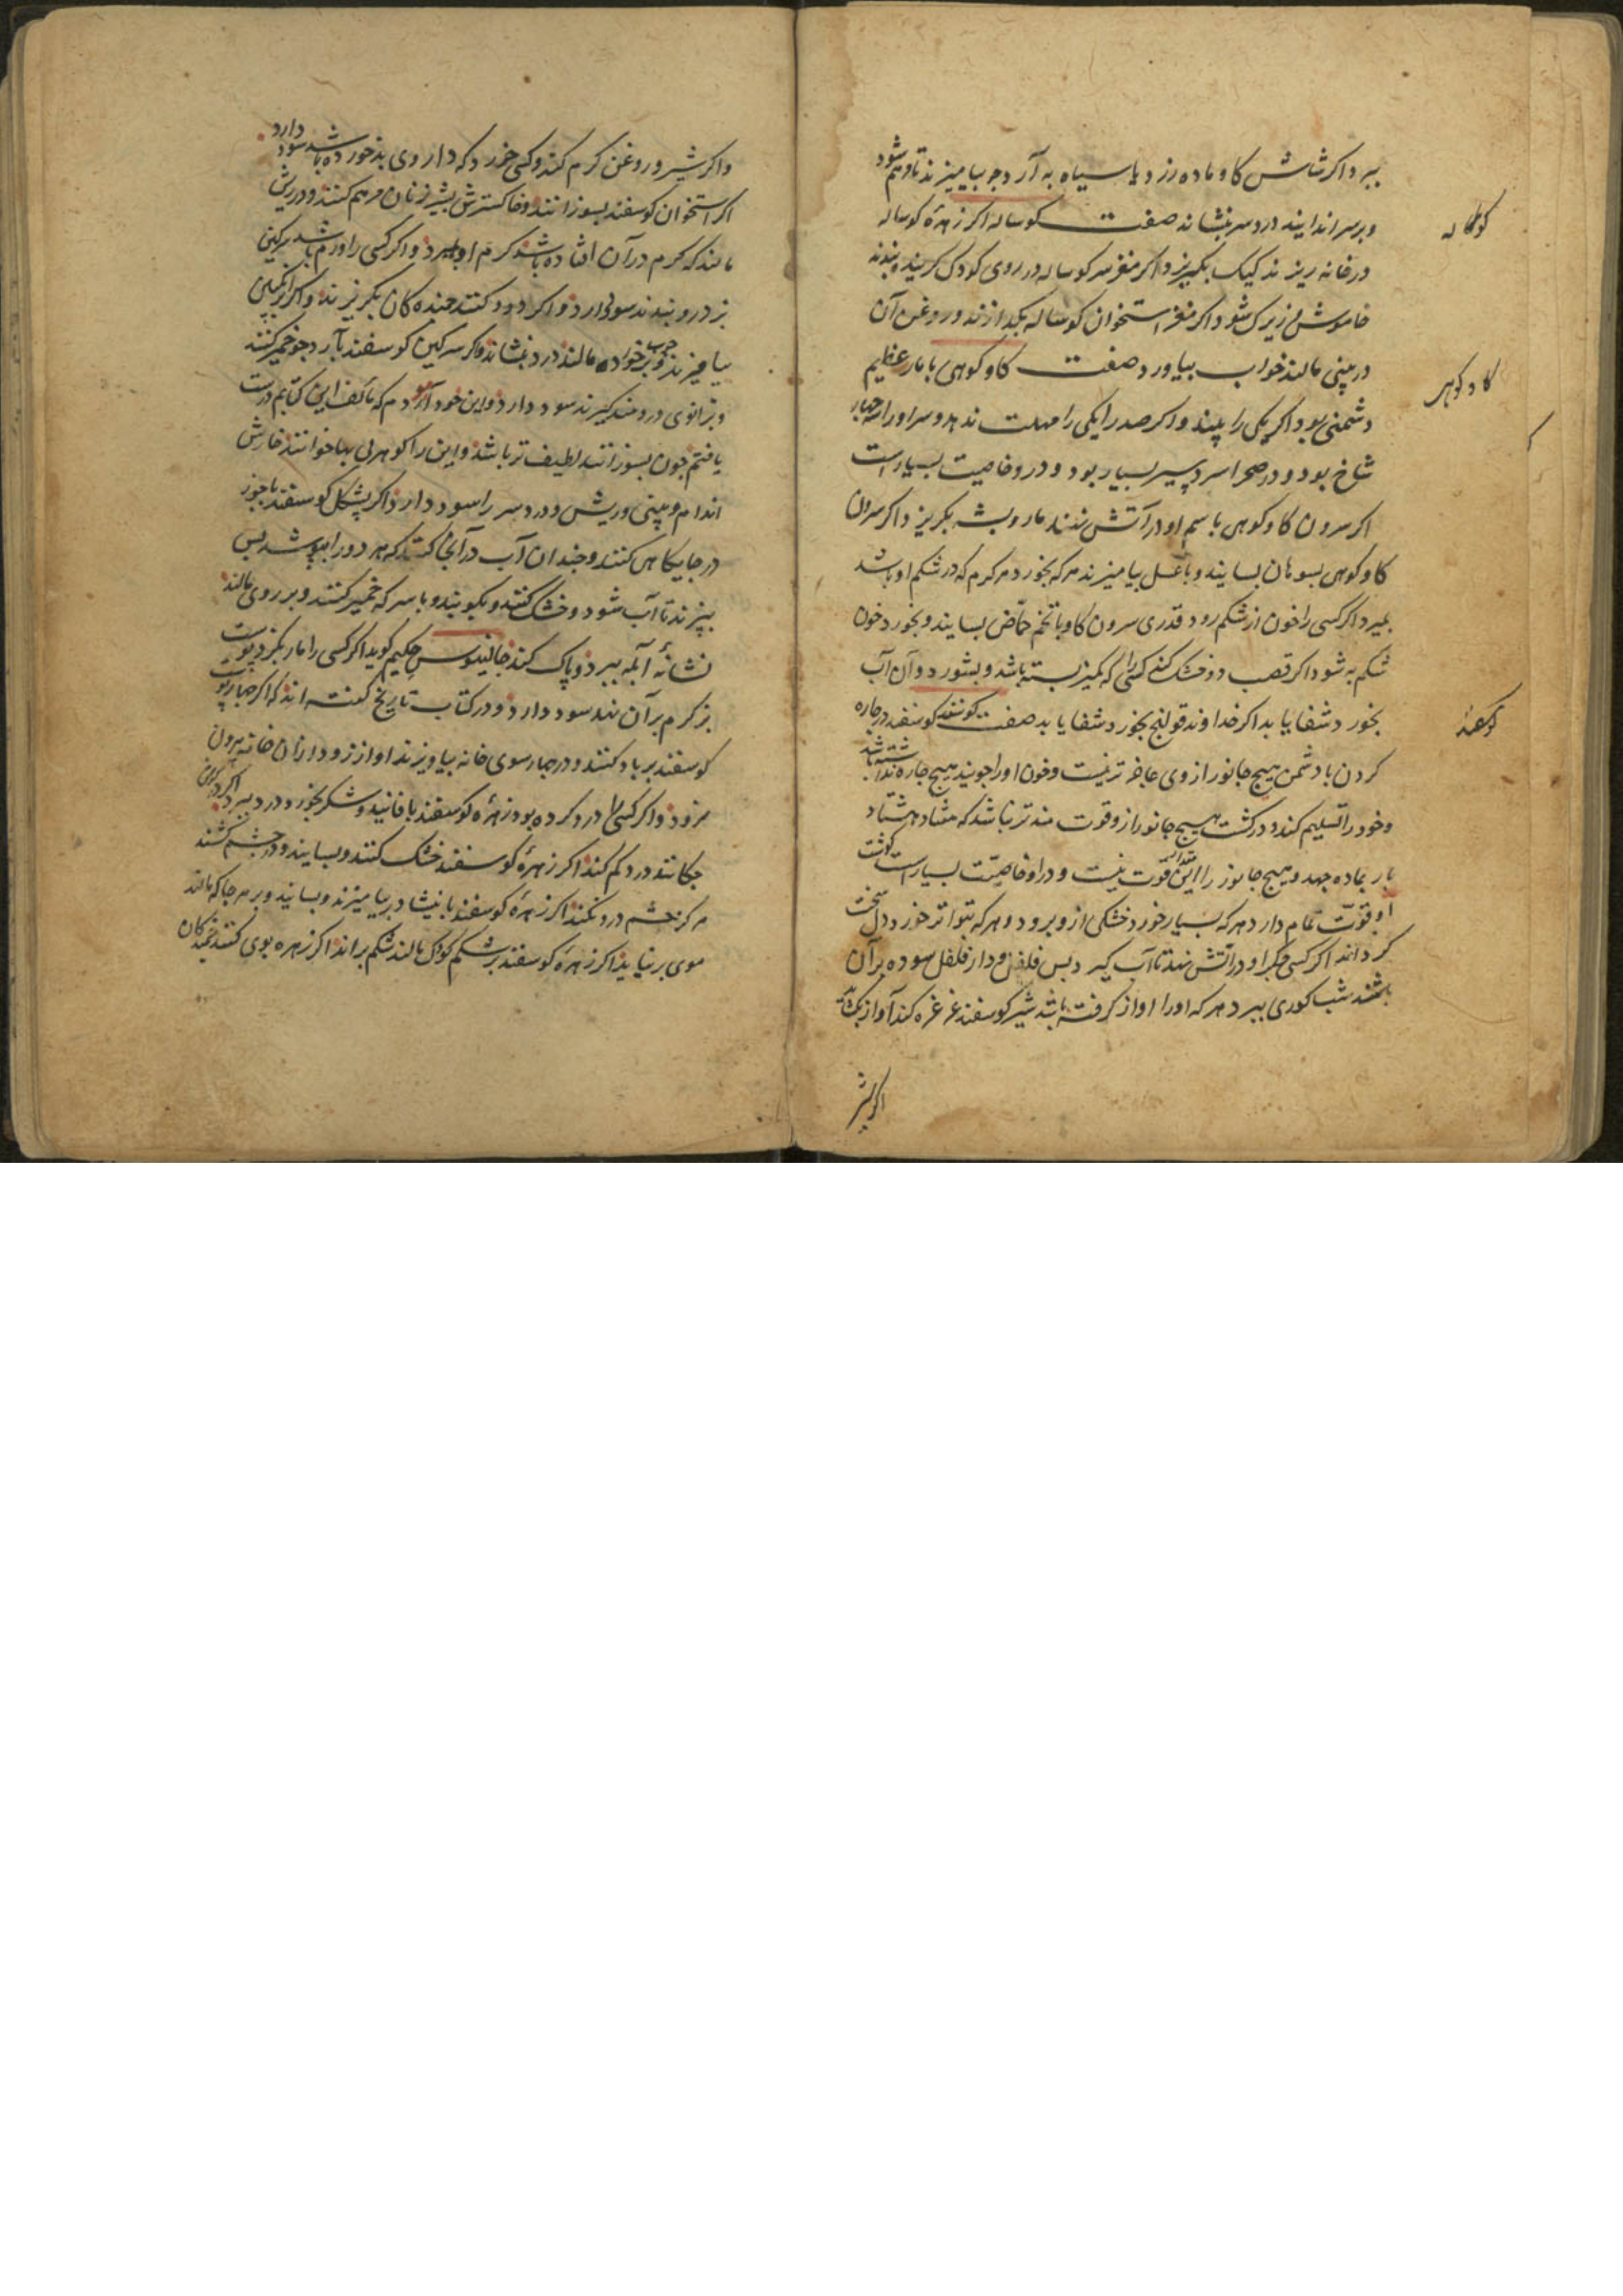 ببرد اکر شاش کاو ماده زرد یا سیاه به آرد جو بیامیزند تا مرهم شود
و بر سر اندایند درد سر بنشاند صفت کوساله اکر زهرهٔ کوساله
در خانه ریزند کیک بکریزد اکر مغز سر کوساله در روی کودک کریند
خاموش زیرک شود اکر مغز استخوان کوساله بکدازند و روغن آن
در بینی مالند خواب بیاورد صفت کاو کوهی با مار عظیم
دشمنی بود اکر یکی را بیند و اکر صد را یکی را مهلت ندهد و سر او را چهار
شاخ بود و در صحرا سردسیر بسیار بود و در و خاصیت بسیار است
اکر سرون کاو کوهی با سم او در آتش نهند مار و پشه بکریزد اکر سرون
کاو کوهی بسوهان بسایند و با عسل بیامیزند هر که بخورد هر کرم که در شکم او باشد
بمیرد اکر کسی را خون از شکم رود قدری سرون کاو با تخم حماض بسایند و بخورد خون
شکم به شود اکر قصب او خشک کنند کسی را که کمیز بسته باشد و بشورد و آن آب
بخورد شفا یابد اکر خداوند قولنج بخورد شفا یابد صفت کوسفند کوسفند در چاره
کردن با دشمن هیچ جانور از وی عاجزتر نیست و خون او را جویند هیچ چاره نداشته باشد
و خود را تسلیم کند و در کشت هیچ جانور ازو قوت مندتر نباشد که هفتاد هشتاد
بار بماده جهد و هیچ جانور را این قوت نیست و در او خاصیت بسیار است کوشت
او قوت تمام دارد هر که بسیار خورد خشکی ازو برود و هر که بتواتر خورد دل سخت
کرداند اکر کسی جکر او در آتش نهد تا آب کیرد پس فلفل و دارفلفل سوده بر آن
باشند شب کوری ببرد هر که او را آواز کرفته باشد شیر کوسفند غرغره کند آواز بکشاید
اکر شیر
کوساله
کاو کوهی
کوسفند
و اکر شیر و روغن کرم کنند و کسی خورد که داروی بد خورده باشد سود دارد
اکر استخوان کوسفند بسوزانند و خاکسترش بشیر زنان مرهم کنند و در ریش
مالند که کرم در آن افتاده باشد کرم او بمیرد و اکر کسی را ورم باشد سرکین
بز درو بندند سود دارد و اکر دود کنند جنبده کان بکریزند و اکر با انکبین
بیامیزند و بر خوره مالند درد بنشاند و اکر سرکین کوسفند با آرد جو خمیر کنند
و بزانوی دردمند کیرند سود دارد و این خود آزمودم که مولف این کتابم درست
یافتم چون بسوزانند لطیف تر باشد و این را کوهر بی بها خوانند خارش
اندام و بینی و ریش و درد سر را سود دارد اکر پشکل کوسفند با جوز
در جایکاهی کنند و چندان آب در آنجا کنند که هر دو را بپوشد پس
بپزند تا آب شود و خشک کنند و بکوبند و با سرکه خمیر کنند و بر روی مالند
نشانهٔ آبله ببرد و پاک کند جالینوس حکیم کوید اکر کسی را مار بکزد پوست
بز کرم بر آن نهند سود دارد و در کتاب تاریخ کفته اند که اکر چهار پوست
کوسفند بر باد کنند و در چهار سوی خانه بیاویزند آواز زود از آن خانه بیرون
رود و اکر کسی را درد کرده بود زهرهٔ کوسفند با فانید و شکر بخورد درد ببرد اکر در کوش
چکانند درد کم کند اکر زهرهٔ کوسفند خشک کنند و بسایند و در چشم کشند
هرکز چشم درد نکند اکر زهرهٔ کوسفند با نشادر بیامیزند و بسایند و بر هر جا که مالند
موی برنیاید اکر زهرهٔ کوسفند بر شکم کودک مالند شکم براند اکر زهره بوی کنند